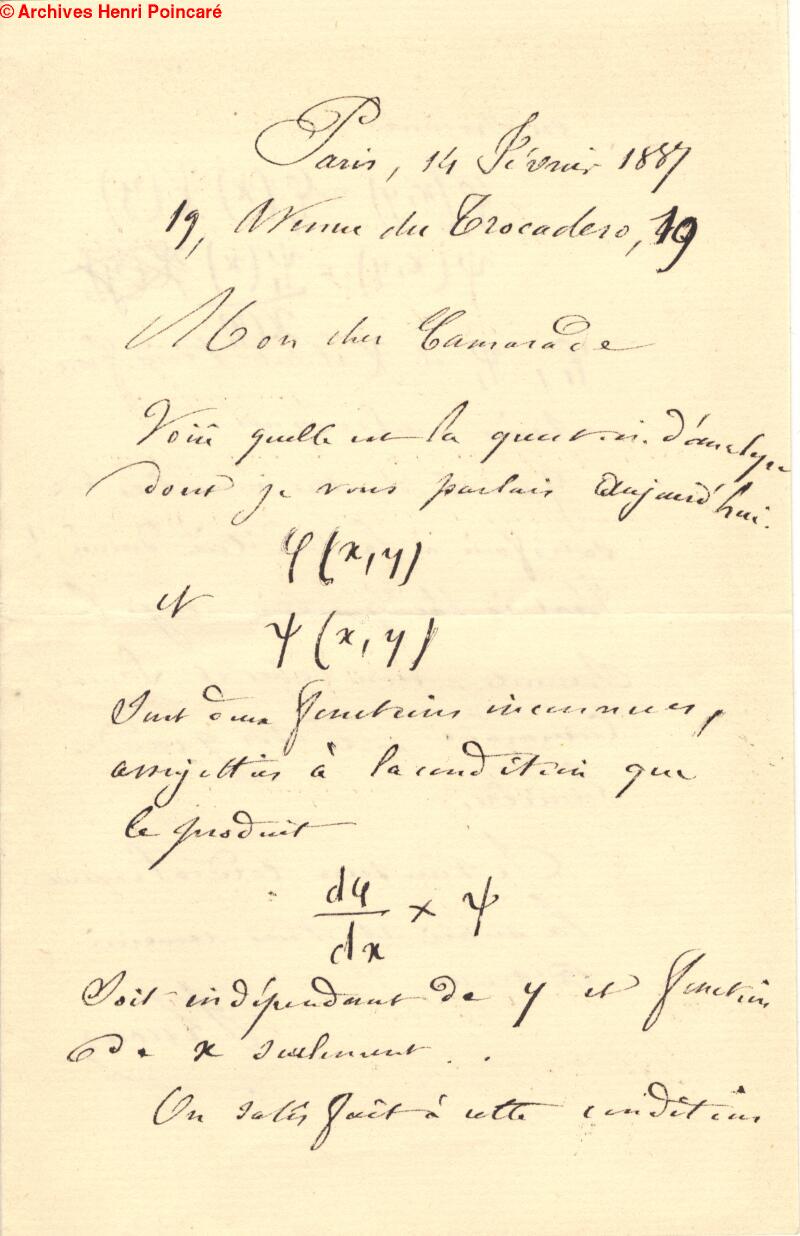 © Archives Henri Poincaré
Paris, 14 Février 1887
19, Avenue du Trocadero, 19
Mon cher Camarade
Voici quelle est la question d'analyse
dont je vous parlais aujourd'hui.
φ(x,y)
et
ψ(x,y)
sont deux fonctions inconnues,
assujetties à la condition que
le produit
dφ/dx × ψ
soit indépendant de y et fonction
de x seulement.
On satisfait à cette condition